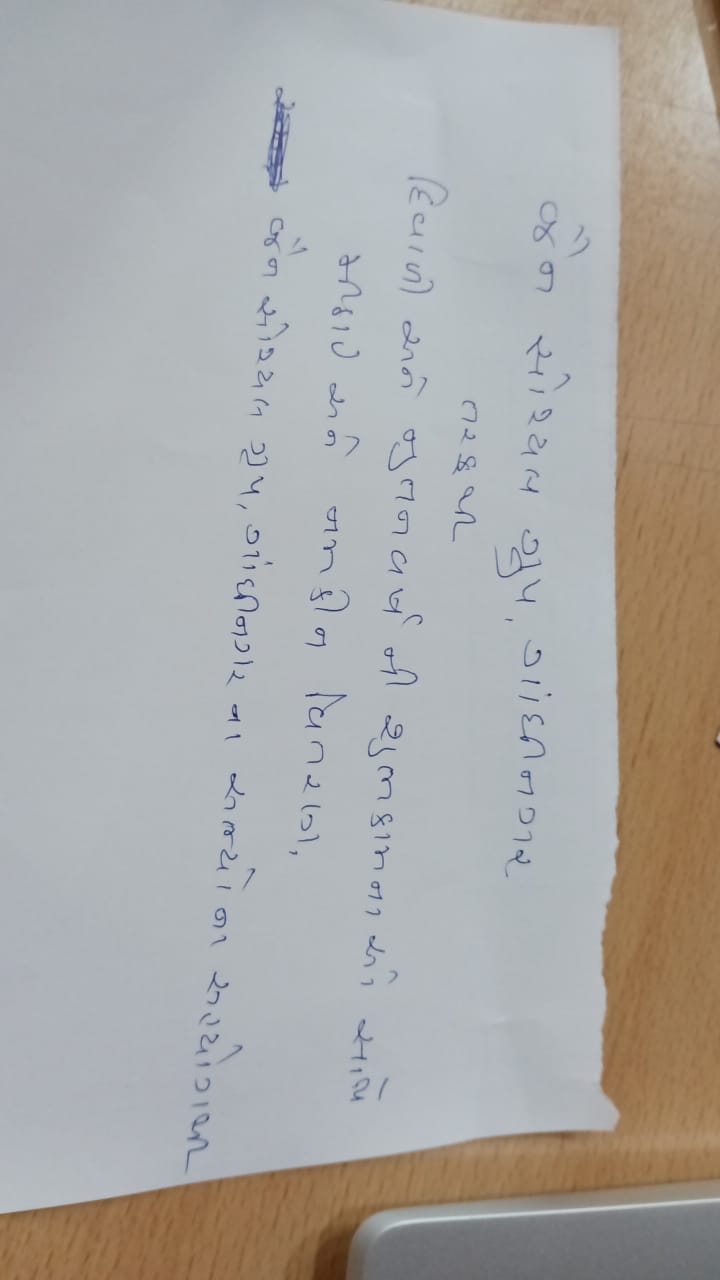 જૈન સોશ્યલ ગ્રુપ, ગાંધીનગર
તરફથી
દિવાળી અને નુતનવર્ષ ની શુભકામનાઓ સાથે
મીઠાઇ અને નમકીન વિતરણ,
જૈન સોશ્યલ ગ્રુપ, ગાંધીનગર ના સભ્યો ના સહયોગથી